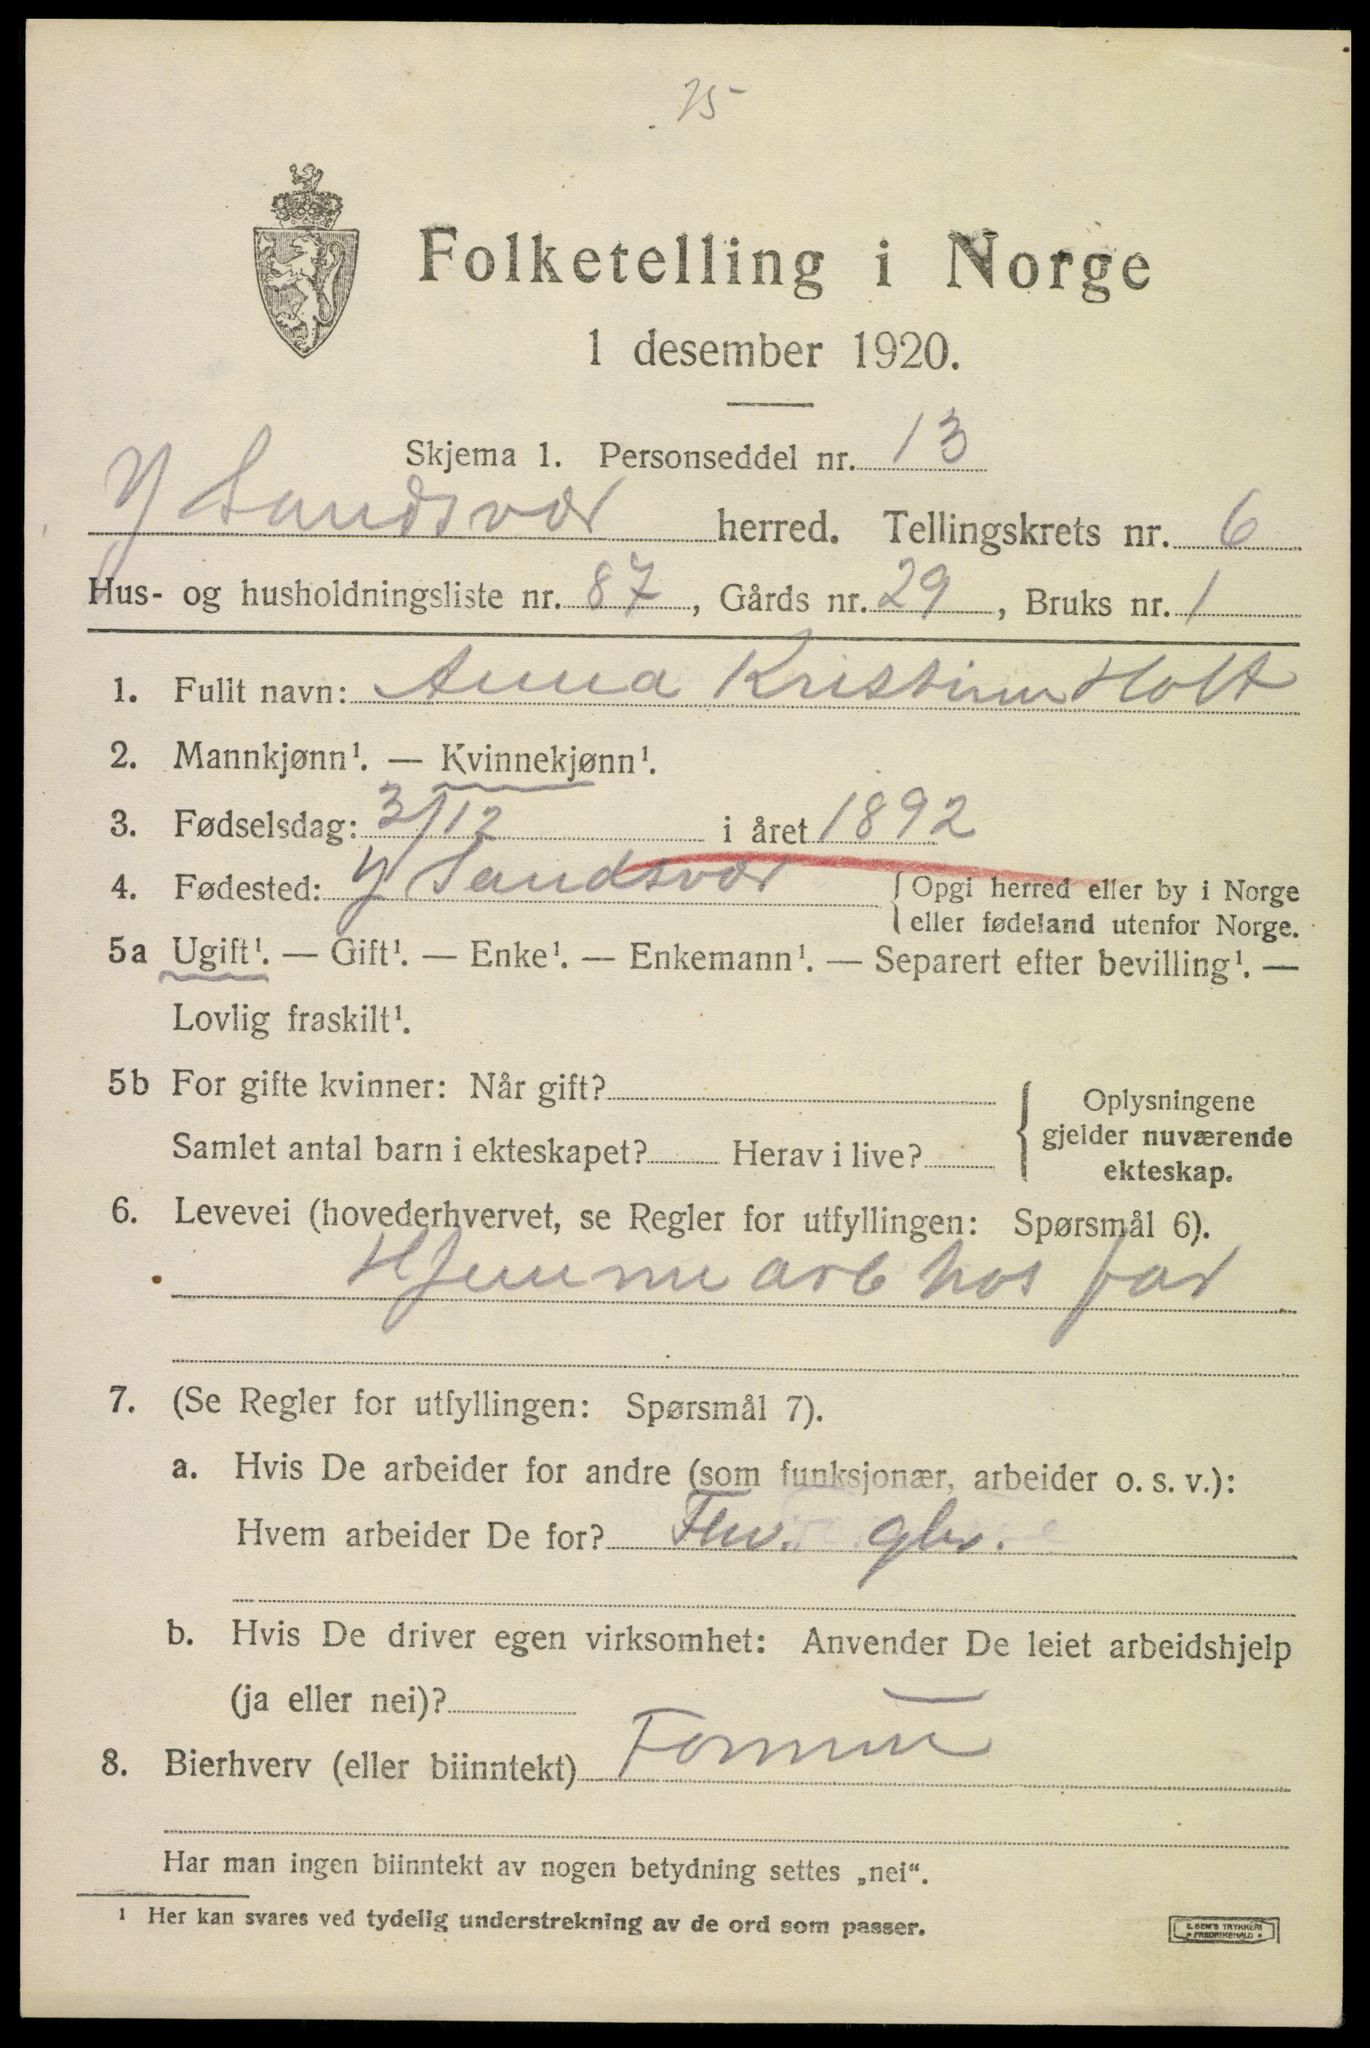 75
Folketelling i Norge
1 desember 1920.
Skjema 1. Personseddel nr. 13
Y Sandsvær herred. Tellingskrets nr. 6
Hus- og husholdningsliste nr. 87, Gårds nr. 29, Bruks nr. 1
1. Fullt navn: Anna Kristine Holt
2. Mannkjønn¹. — Kvinnekjønn¹.
3. Fødselsdag: 3/12 i året 1892
4. Fødested: Y Sandsvær { Opgi herred eller by i Norge
eller fødeland utenfor Norge.
5a Ugift¹. — Gift¹. — Enke¹. — Enkemann¹. — Separert efter bevilling¹. —
Lovlig fraskilt¹.
5b For gifte kvinner: Når gift?
Samlet antal barn i ekteskapet? Herav i live?
{ Oplysningene
gjelder nuværende
ekteskap.
6. Levevei (hovederhvervet, se Regler for utfyllingen: Spørsmål 6).
Hjemme arb hos far
7. (Se Regler for utfyllingen: Spørsmål 7).
a. Hvis De arbeider for andre (som funksjonær, arbeider o. s. v.):
Hvem arbeider De for? gbr.
b. Hvis De driver egen virksomhet: Anvender De leiet arbeidshjelp
(ja eller nei)?
8. Bierhverv (eller biinntekt) Formue
Har man ingen biinntekt av nogen betydning settes „nei“.
¹ Her kan svares ved tydelig understrekning av de ord som passer.
E. SEM'S TRYKKERI
• FREDRIKSHALD •